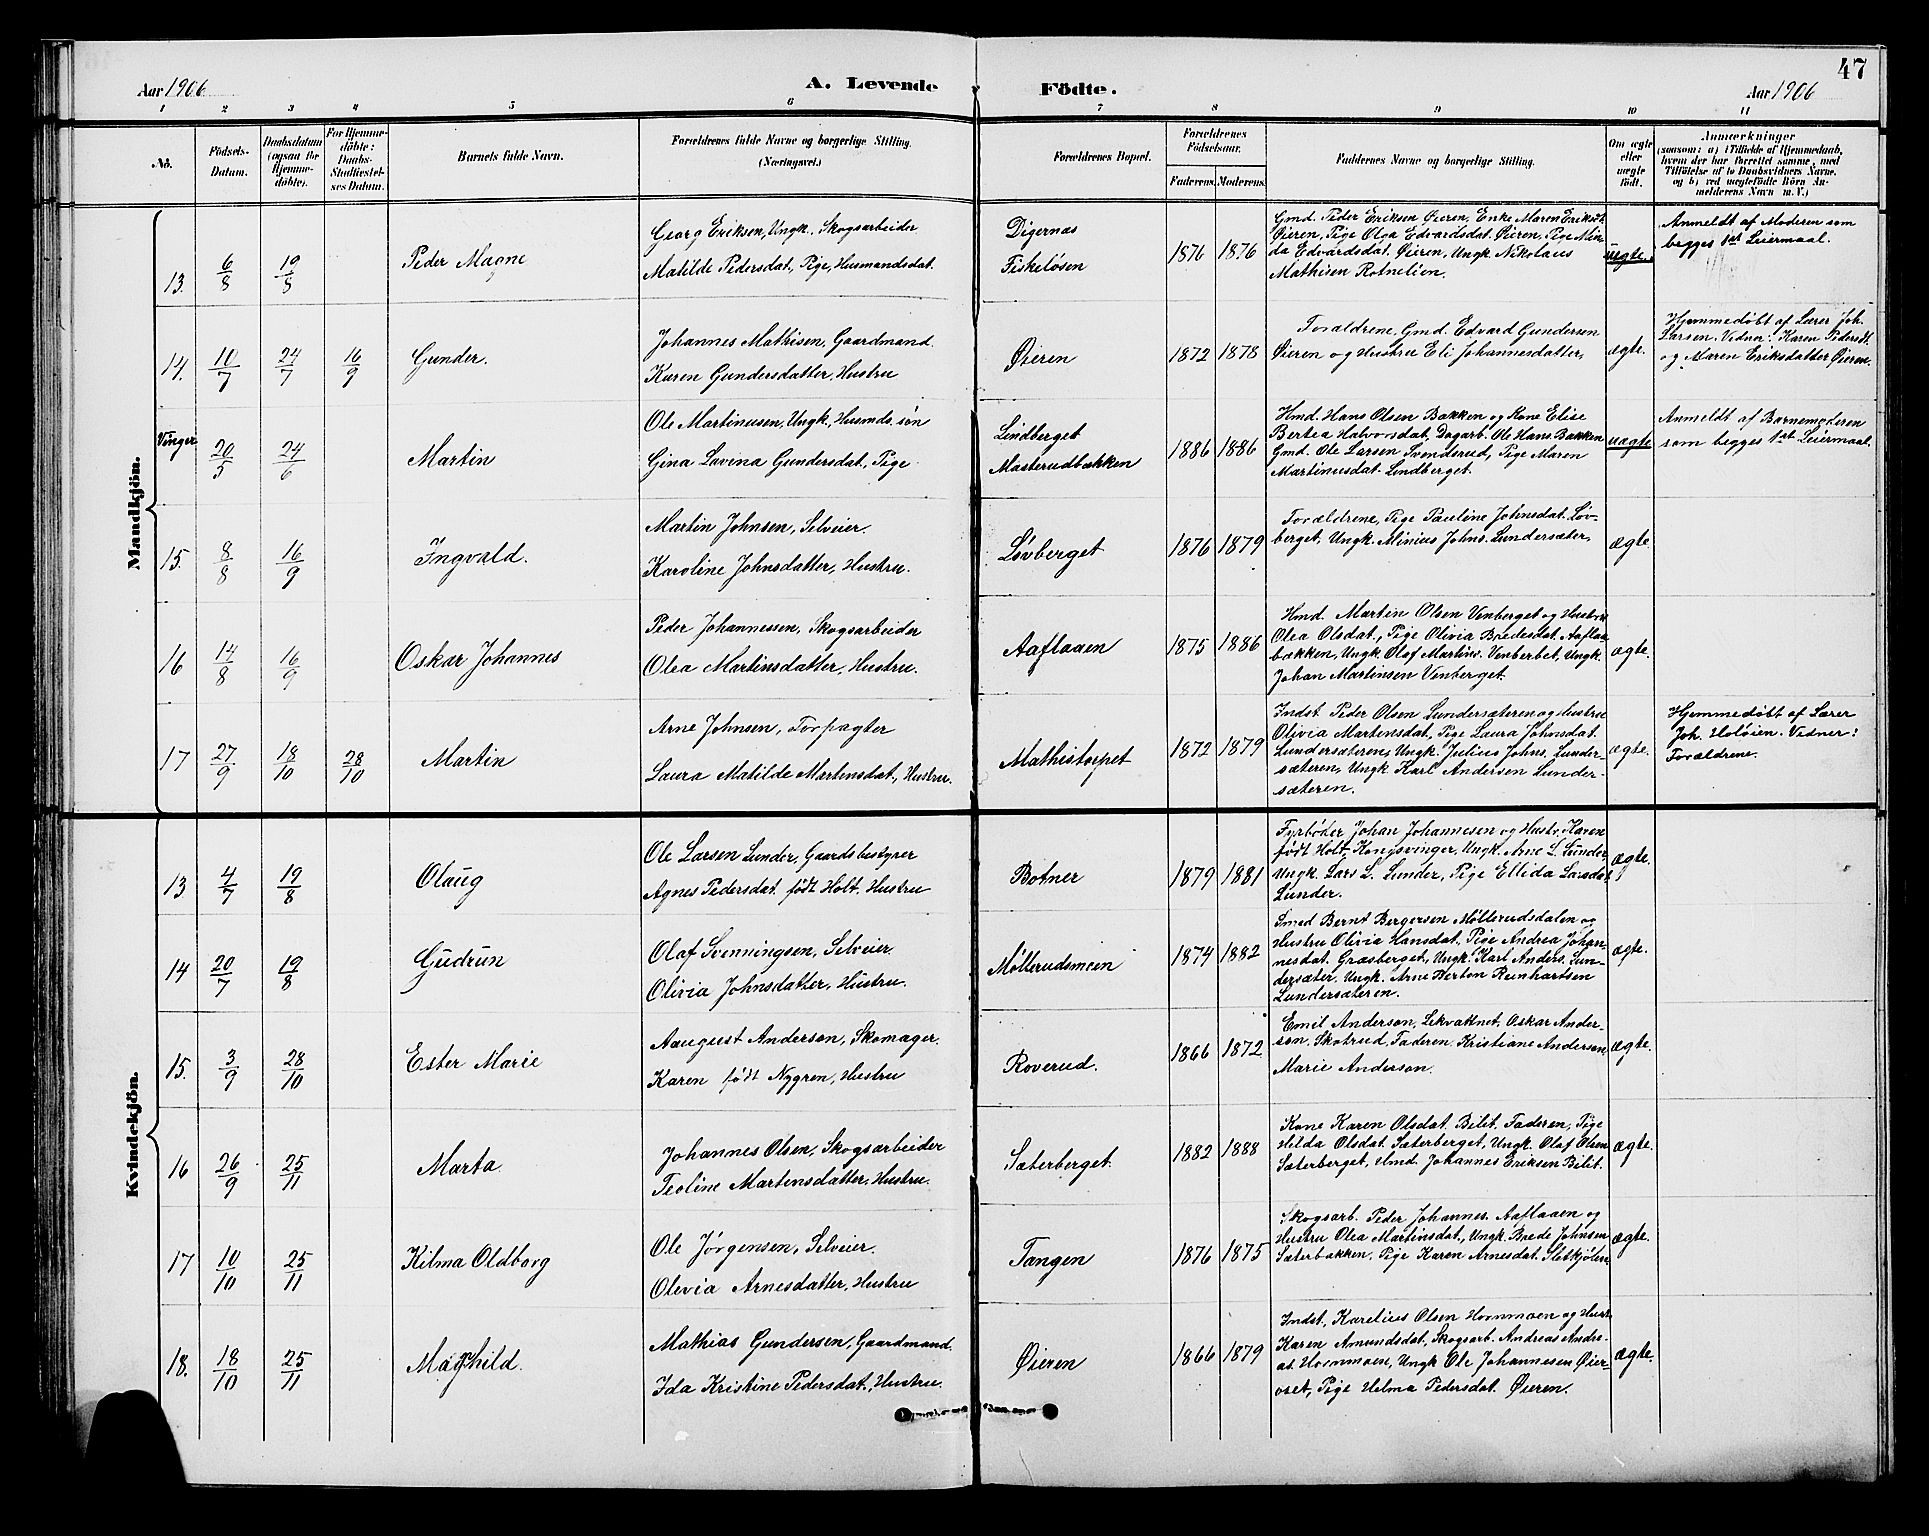 47
Aar 1906
A. Levende Födte.
Aar 1906
1 2 3 4 5 6 7 8 9 10 11
No.
Födsels-Datum.
Daabsdatum (ogsaa for Hjemmedöbte).
For Hjemmedöbte: Daabs-Stadfæstelses Datum.
Barnets fulde Navn.
Forældrenes fulde Navne og borgerlige Stilling.
(Næringsvei.)
Forældrenes Bopæl.
Forældrenes Födselsaar.
Faderens. Moderens.
Faddernes Navne og borgerlige Stilling.
Om ægte eller uægte födt.
Anmærkninger
(saasom: a) i Tilfælde af Hjemmedaab,
hvem der har forrettet samme, med
Tilföielse af to Daabsvidners Navne,
og b) ved uægtefödte Börn An-
melderens Navn m. V.)
Mandkjön.
13. 6/8 19/8
Peder Magne
Georg Eriksen, Ungk. Skogsarbeider
Matilde Pedersdat, Pige, Husmandsdat.
Digernas
Fiskeløsen
1876 1876
Gmd. Peder Eriksen Øieren, Enke Maren Eriksdt.
Øieren, Pige Olga Edvardsdat. Øieren, Pige Min-
da Edvardsdat. Øieren, Ungk. Nikolaus
Mathisen Rotnelien.
uegte.
Anmeldt af Moderen som
begges 1ste Leiermaal.
14. 10/7 24/7 16/9
Gunder.
Johannes Mathisen, Gaardmand.
Karen Gundersdatter, Hustru
Øieren
1872 1878
Forældrene, Gmd. Edvard Gundersen
Øieren og Hustru Eli Johannesdatter,
ægte.
Hjemmedøbt af Lærer Joh.
Larsen. Vidner: Karen Pedersdt
og Maren Eriksdatter Øieren.
Vinger
20/5 24/6
Martin
Ole Martinusen, Ungk, Husmds. søn
Gina Lovina Gundersdat, Pige
Lindberget
Masterudbækken
1886 1886
Hmd. Hans Olsen Bakken og Kone Elise
Bertea Halvorsdat, Dagarb. Ole Hans. Bakken
Gmd. Ole Larsen Svenderud, Pige Maren
Martinusdat. Lindberget.
uægte
Anmeldt af Barnemoderen
som begges 1ste Leiermaal.
15. 8/8 16/9
Ingvald.
Martin Johnsen, Selveier.
Karoline Johnsdatter, Hustru.
Løvberget
1876 1879
Forældrene, Pige Pauline Johnsdat. Løv-
berget, Ungk. Minius Johns. Lundersæter,
ægte.
16 14/8 16/9
Oskar Johannes
Peder Johannessen, Skogsarbeider
Olea Martinsdatter, Hustru.
Aaflaaen
1875 1886
Hmd. Martin Olsen Venberget og Hustru
Olea Olsdat., Pige Olivia Bredesdat. Aaflaa-
bækken, Ungk. Olaf Martins. Venberbet, Ungk.
Johan Martinsen Venberget.
ægte.
17 27/9 18/10 28/10
Martin
Arne Johnsen, Forpagter
Laura Matilde Martinsdat, Hustru.
Mathistorpet
1872 1879
Indst. Peder Olsen Lundersæteren og Hustru
Olivia Martensdat, Pige Laura Johnsdat.
Lundersæteren, Ungk. Julius Johns. Lunder-
sæteren, Ungk Karl Andersen Lunder-
sæteren.
ægte.
Hjemmedøbt af Lærer
Joh. Holøien. Vidner:
Forældrene.
Kvindekjön.
13. 4/7 19/8
Olaug
Ole Larsen Lunder, Gaardsbestyrer
Agnes Pedersdat. født Holt, Hustru
Botner
1879 1881
Fyrbøder Johan Johannesen og Hustr. Karen
født Holt, Kongsvinger, Ungk. Arne L. Lunder,
Ungk. Lars L. Lunder, Pige Ellida Larsdat.
Lunder.
ægte.
14 20/7 19/8
Gudrun
Olaf Svenningsen, Selveier.
Olivia Johnsdatter, Hustru.
Møllerudsmoen
1874 1882
Smed Bernt Bergersen Møllerudsdalen og
Hustru Olivia Hansdat, Pige Andrea Johan-
nesdat. Grasberget, Ungk. Karl Anders. Lun-
dersæter. Ungk. Arne Herton Reinhartsen
Lundersæteren.
ægte.
15. 3/9 28/10
Ester Marie
Aaugust Anderson, Skomager.
Karen født Nygren, Hustru
Roverud.
1866 1872
Emil Anderson, Lekvattnet, Oskar Ander-
son, Skotrud, Faderen. Kristiane Anderson,
Marie Anderson.
ægte.
16 26/9 25/11
Marta
Johannes Olsen, Skogsarbeider
Teoline Martensdatter, Hustru.
Sæterberget.
1882 1888
Kone Karen Olsdat. Bilit, Faderen, Pige
Hilda Olsdat. Sæterberget, Ungk. Olaf Olsen
Sæterberget, Hmd. Johannes Eriksen Bilit.
ægte.
17 10/10 25/11
Kilma Oldborg
Ole Jørgensen, Selveier.
Olevia Arnesdatter, Hustru
Tangen
1876 1875
Skogsarb. Peder Johannes. Aaflaaen og
Hustru Olea Martinsdat, Ungk. Brede Johnsen
Sæterbakken, Pige Karen Arnesdat. Sletkjølen.
ægte.
18. 18/10 25/11
Maghild.
Mathias Gundersen, Gaardmand.
Ida Kristine Pedersdat, Hustru.
Øieren
1866 1879
Indst. Karelius Olsen Hornmoen og Hustr
Karen Amundsdat, Skogsarb. Andreas Andre-
as. Hornmoen, Ungk Ole Johannesen Øier-
oset, Pige Helma Pedersdat. Øieren.
ægte.